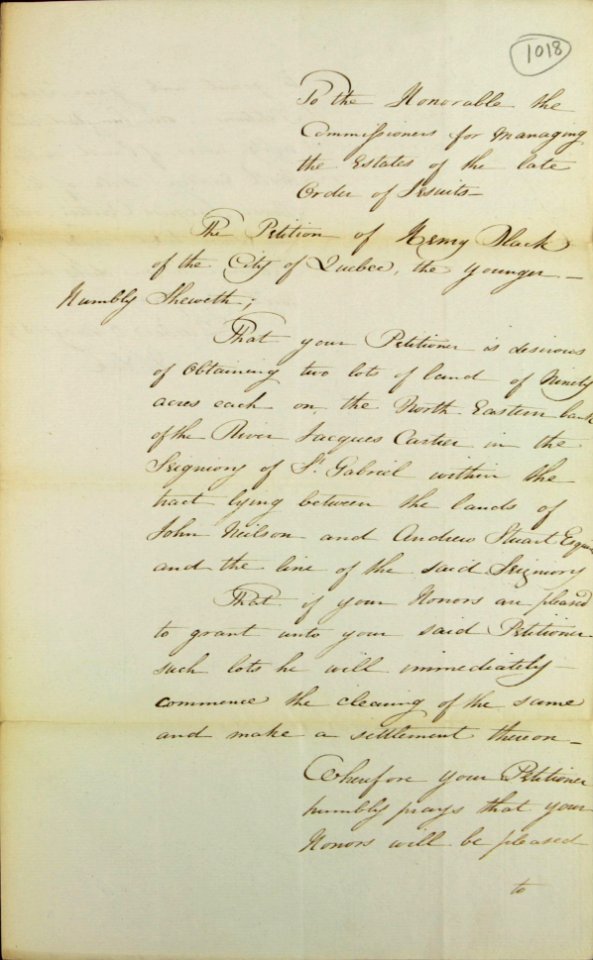 1018
To the Honorable the
Commissioners for Managing
the Estates of the late
Order of Jesuits—
The Petition of Henry Black
of the City of Quebec, the younger—
Humbly Sheweth;
That your Petitioner is desirous
of obtaining two lots of land of Ninety
acres each on the North Eastern bank
of the River Jacques Cartier in the
Seigniory of St. Gabriel within the
tract lying between the lands of
John Neilson and Andrew Stuart Esquire
and the line of the said Seigniory
That if your Honors are pleased
to grant unto your said Petitioner
such lots he will immediately
commence the clearing of the same
and make a settlement thereon—
Wherefore your Petitioner
humbly prays that your
Honors will be pleased
to